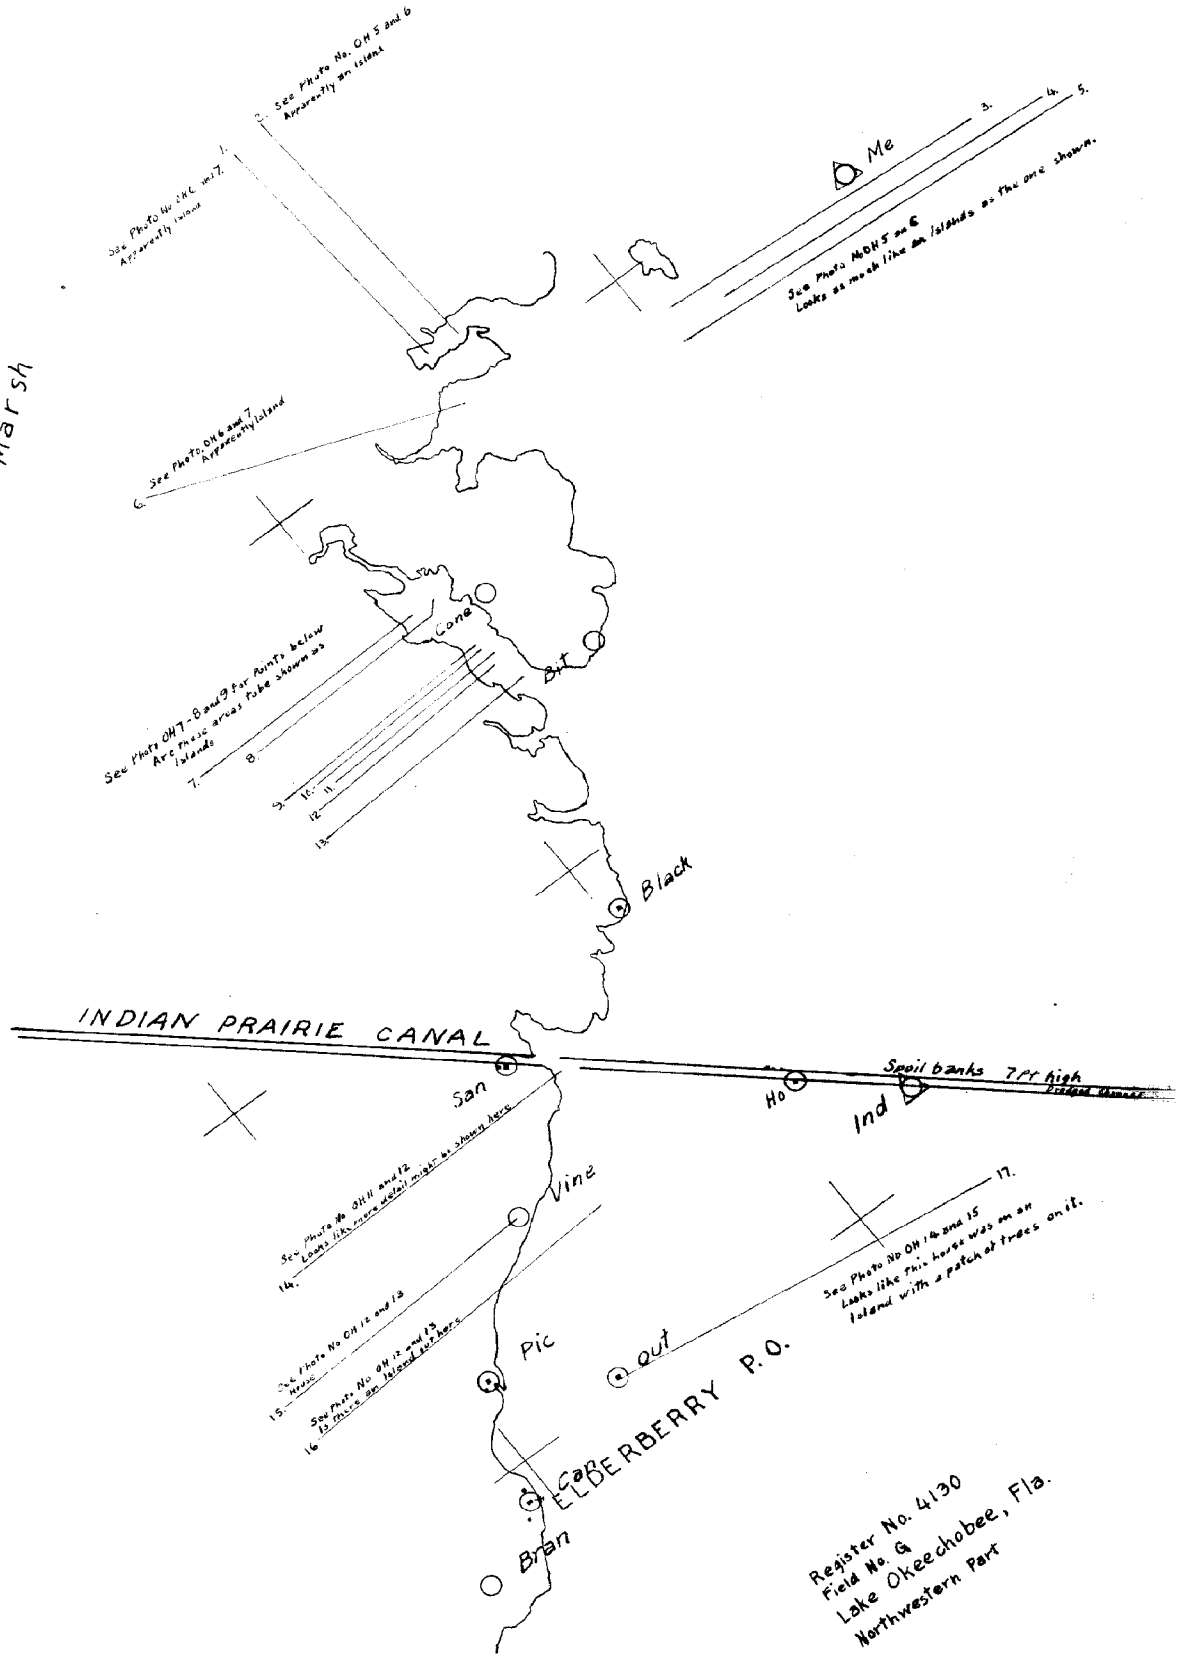 2. See Photo No. OH 5 and 6
Apparently an Island
1.
See Photo No OH 6 and 7.
Apparently Island
3.
4.
5.
Me
See Photo No OH 5 and 6
Looks as much like an Islands as the one shown.
Marsh
6. See Photo OH 6 and 7
Apparently Island
Cane
Bit
See Photo OH 7-8 and 9 for Points below
Are these areas to be shown as
Islands
7.
8.
9.
10.
11.
12
13.
Black
INDIAN PRAIRIE CANAL
San
Ho
Spoil banks 7 ft high
Dredged channel
Ind
See Photo No OH 11 and 12
Looks like more detail might be shown here
14.
Vine
17.
See Photo No OH 14 and 15
Looks like this house was on an
Island with a patch of trees on it.
See Photo No OH 12 and 13
House
15.
See Photo No OH 12 and 13
Is there an Island out here
16
Pic
Out
ELDERBERRY P.O.
Can
Bran
Register No. 4130
Field No. G
Lake Okeechobee, Fla.
Northwestern Part